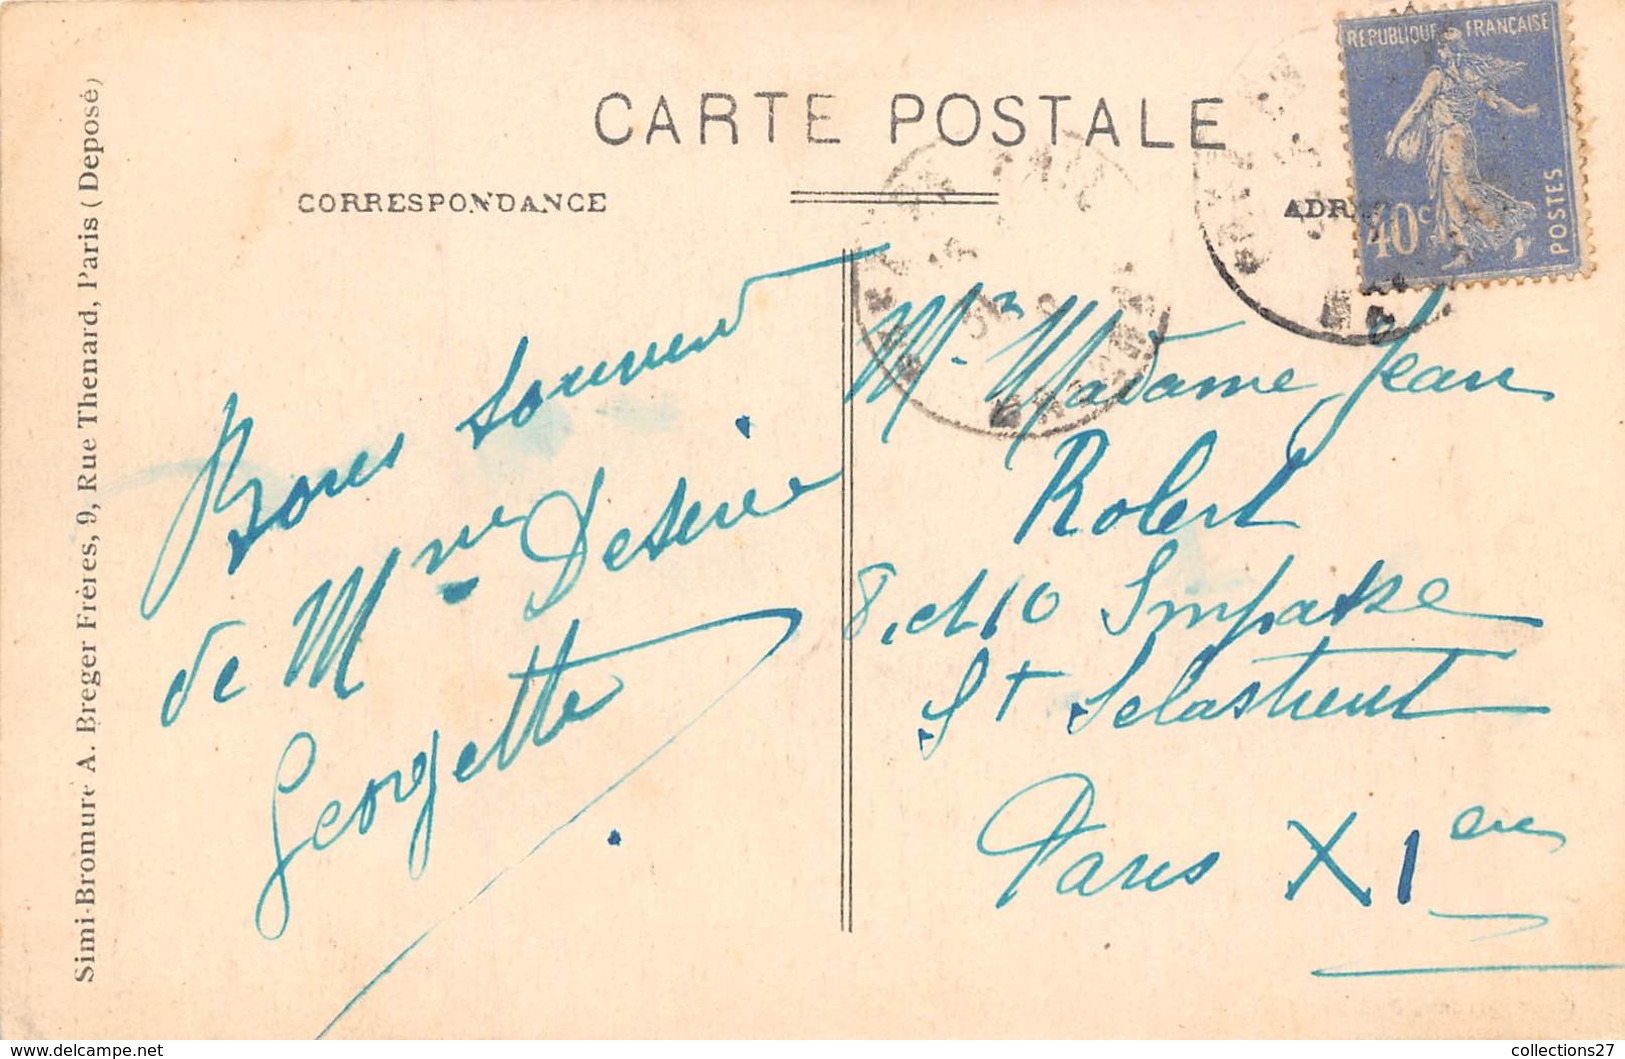 CARTE POSTALE
CORRESPONDANCE
ADR
REPUBLIQUE FRANÇAISE
40c
POSTES
Simi-Bromure A. Breger Frères, 9, Rue Thenard, Paris (Deposé)
Bons souvenir
de Mme Desirée
Georgette
Mr Madame Jean
Robert
8, et 10 Impasse
St Sebastient
Paris XIem
collections27
www.delcampe.net